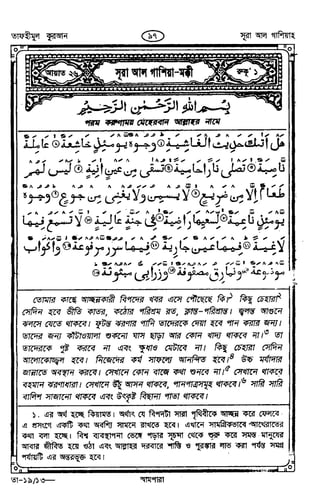 তাফহীমুল কুরআন
৯৭
সূরা আল গাশিয়াহ
আয়াত ২৬
সূরা আল গাশিয়া-মক্কী
রুকূ' ১
بِسْمِ اللهِ الرَّحْمٰنِ الرَّحِيْمِ
পরম করুণাময় মেহেরবান আল্লাহর নামে
هَلْ اَتٰىكَ حَدِيْثُ الْغَاشِيَةِ ۝ وُجُوْهٌ يَّوْمَئِذٍ خَاشِعَةٌ ۝ عَامِلَةٌ
نَّاصِبَةٌ ۝ تَصْلٰى نَارًا حَامِيَةً ۝ تُسْقٰى مِنْ عَيْنٍ اٰنِيَةٍ ۝ لَيْسَ لَهُمْ
طَعَامٌ اِلَّا مِنْ ضَرِيْعٍ ۝ لَّا يُسْمِنُ وَلَا يُغْنِيْ مِنْ جُوْعٍ ۝ وُجُوْهٌ
يَّوْمَئِذٍ نَّاعِمَةٌ ۝ لِّسَعْيِهَا رَاضِيَةٌ ۝ فِيْ جَنَّةٍ عَالِيَةٍ ۝ لَّا تَسْمَعُ فِيْهَا
لَاغِيَةً ۝ فِيْهَا عَيْنٌ جَارِيَةٌ ۝ فِيْهَا سُرُرٌ مَّرْفُوْعَةٌ ۝ وَّاَكْوَابٌ
مَّوْضُوْعَةٌ ۝ وَّنَمَارِقُ مَصْفُوْفَةٌ ۝ وَّزَرَابِيُّ مَبْثُوْثَةٌ ۝
তোমার কাছে আচ্ছন্নকারী বিপদের খবর এসে পৌঁছেছে কি?১ কিছু চেহারা২
সেদিন হবে ভীত কাতর, কঠোর পরিশ্রম রত, ক্লান্ত-পরিশ্রান্ত। জ্বলন্ত আগুনে
ঝলসে যেতে থাকবে। ফুটন্ত ঝরণার পানি তাদেরকে দেয়া হবে পান করার জন্য।
তাদের জন্য কাঁটাওয়ালা শুকনো ঘাস ছাড়া আর কোন খাদ্য থাকবে না।৩ তা
তাদেরকে পুষ্ট করবে না এবং ক্ষুধাও মেটাবে না। কিছু চেহারা সেদিন
আলোকোজ্জ্বল হবে। নিজেদের কর্ম সাফল্যে আনন্দিত হবে।৪ উচ্চ মর্যাদার
জান্নাতে অবস্থান করবে। সেখানে কোন বাজে কথা শুনবে না।৫ সেখানে থাকবে
বহমান ঝরণাধারা। সেখানে উঁচু আসন থাকবে, পানপাত্রসমূহ থাকবে।৬ সারি সারি
বালিশ সাজানো থাকবে এবং উৎকৃষ্ট বিছানা পাতা থাকবে।
১. এর অর্থ হচ্ছে কিয়ামত। অর্থাৎ যে বিপদটা সারা পৃথিবীকে আচ্ছন্ন করে ফেলবে।
এ প্রসংগে একটি কথা অবশ্যি সামনে রাখতে হবে। এখানে সামগ্রিকভাবে আখেরাতের
কথা বলা হচ্ছে। বিশ্ব ব্যবস্থাপনা ভেঙ্গে পড়ার সূচনা থেকে শুরু করে সমস্ত মানুষের
আবার জীবিত হয়ে ওঠা এবং আল্লাহর দরবারে শাস্তি ও পুরস্কার লাভ করা পর্যন্ত সমগ্র
পর্যায়টি এর অন্তরভুক্ত হবে।
তা-১৯/১৩—
আমপারা